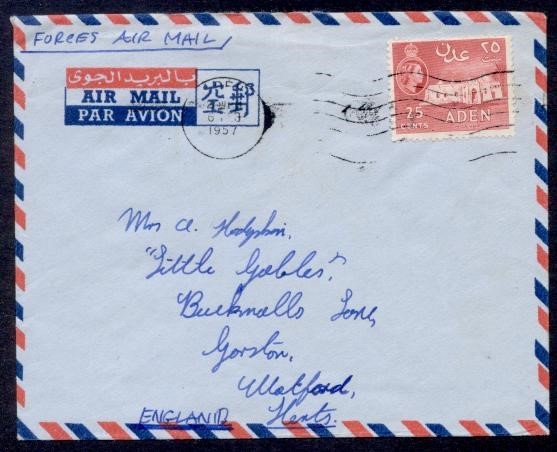 FORCES AIR MAIL
بالبريد الجوى
AIR MAIL
PAR AVION
1957
عدن ٢٥
25
CENTS
ADEN
Mrs A. Hodgkin,
"Little Gables",
Bucknalls Lane,
Garston,
Watford,
Herts.
ENGLAND